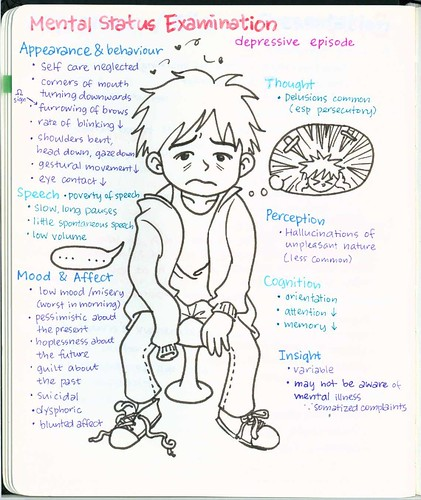 Mental Status Examination
depressive episode
Appearance & behaviour
• self care neglected
• corners of mouth
turning downwards
Ω
sign
• furrowing of brows
• rate of blinking ↓
• shoulders bent,
head down, gaze down
• gestural movement ↓
• eye contact ↓
Speech • poverty of speech
• slow, long pauses
• little spontaneous speech
• low volume
Mood & Affect
• low mood/misery
(worst in morning)
• pessimistic about
the present
• hoplessness about
the future
• guilt about
the past
• suicidal
• dysphoric
• blunted affect
Thought
• Delusions common
(esp persecutory)
Perception
• Hallucinations of
unpleasant nature
(less common)
Cognition
• orientation
• attention ↓
• memory ↓
Insight
• variable
• may not be aware of
mental illness
∵ somatized complaints